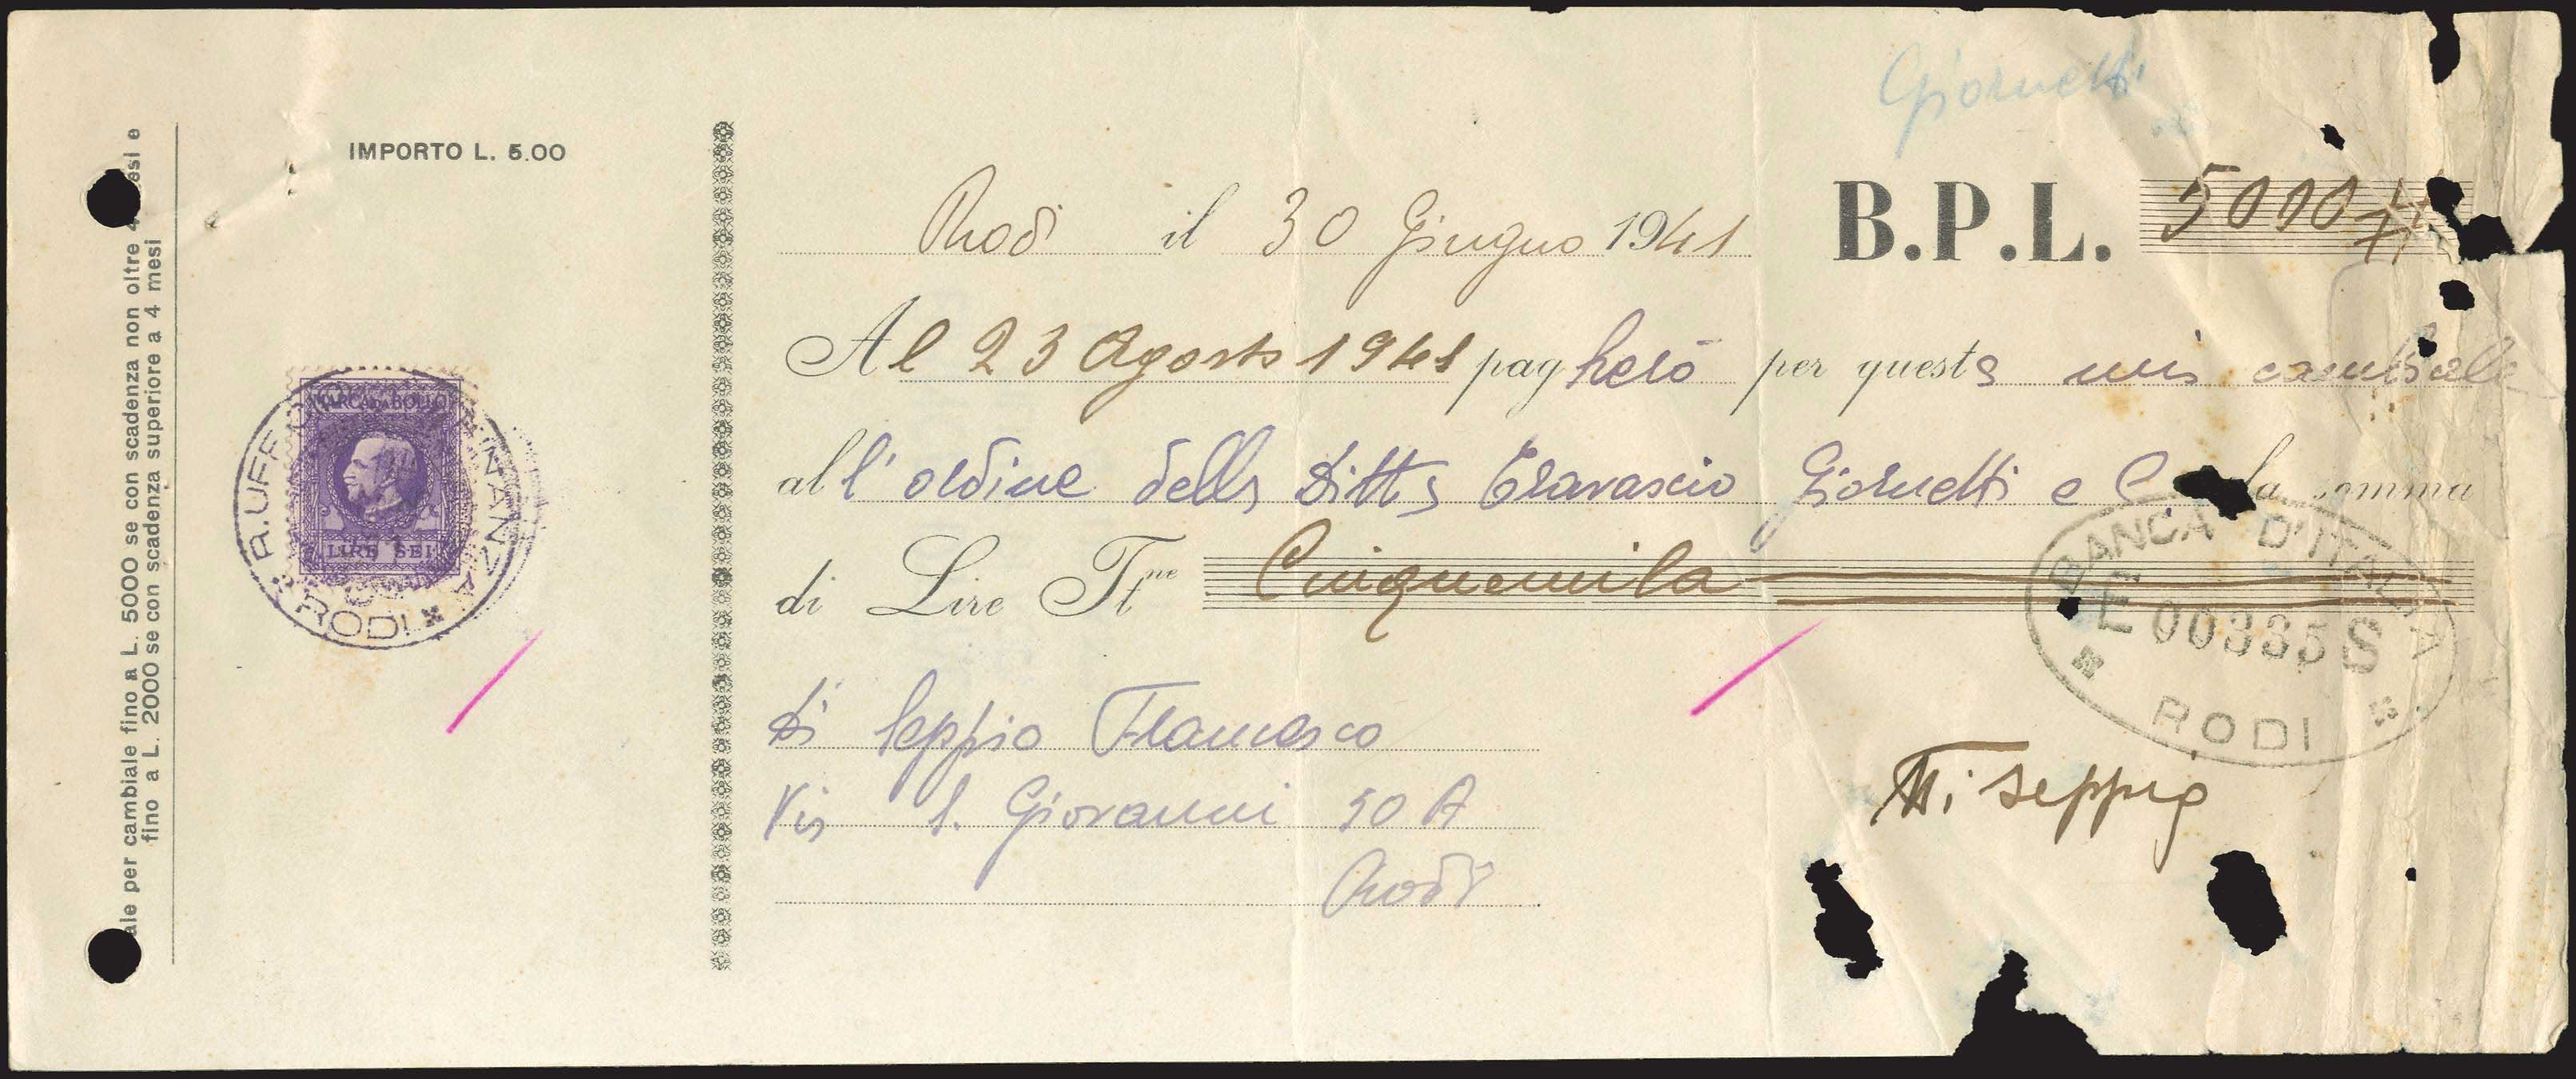 ale per cambiale fino a L. 5000 se con scadenza non oltre 4 mesi e
fino a L. 2000 se con scadenza superiore a 4 mesi
IMPORTO L. 5.00
MARCA DA BOLLO
LIRE SEI
R. UFF FINANZA
RODI
Giornetti
Rodi il 30 Giugno 1941 B.P.L. 5000
Al 23 Agosto 1941 pagherò per questa mia cambiale
all'ordine della Ditta Travascio Giornetti e C. la somma
di Lire It.ne Cinquemila
BANCA D'ITALIA
E 00335 S
RODI
Di Seppio Francesco
Via S. Giovanni 50 A
Rodi
Di Seppio